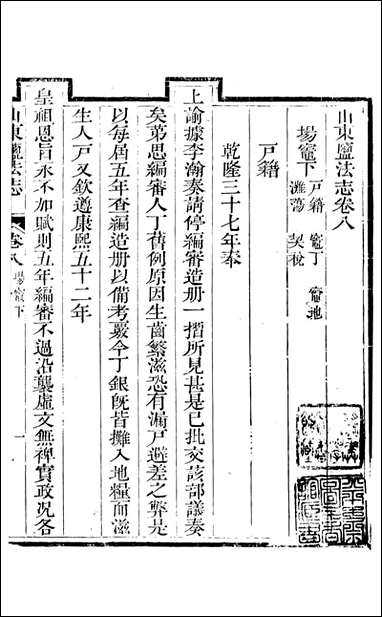 山東鹽法志卷八
場竈下 戶籍 竈丁 竈地
灘蕩 契稅
戶籍
乾隆三十七年奉
上諭據李瀚奏請停編審造册一摺所見甚是已批交該部議奏
矣第思編審人丁舊例原因生齒繁滋恐有漏戶避差之弊是
以每屆五年查編造册以備考覈今丁銀旣皆攤入地糧而滋
生人戶又欽遵康熙五十二年
皇祖恩旨永不加賦則五年編審不過沿襲虛文無裨實政况各
山東鹽法志 卷八 場竈下 一